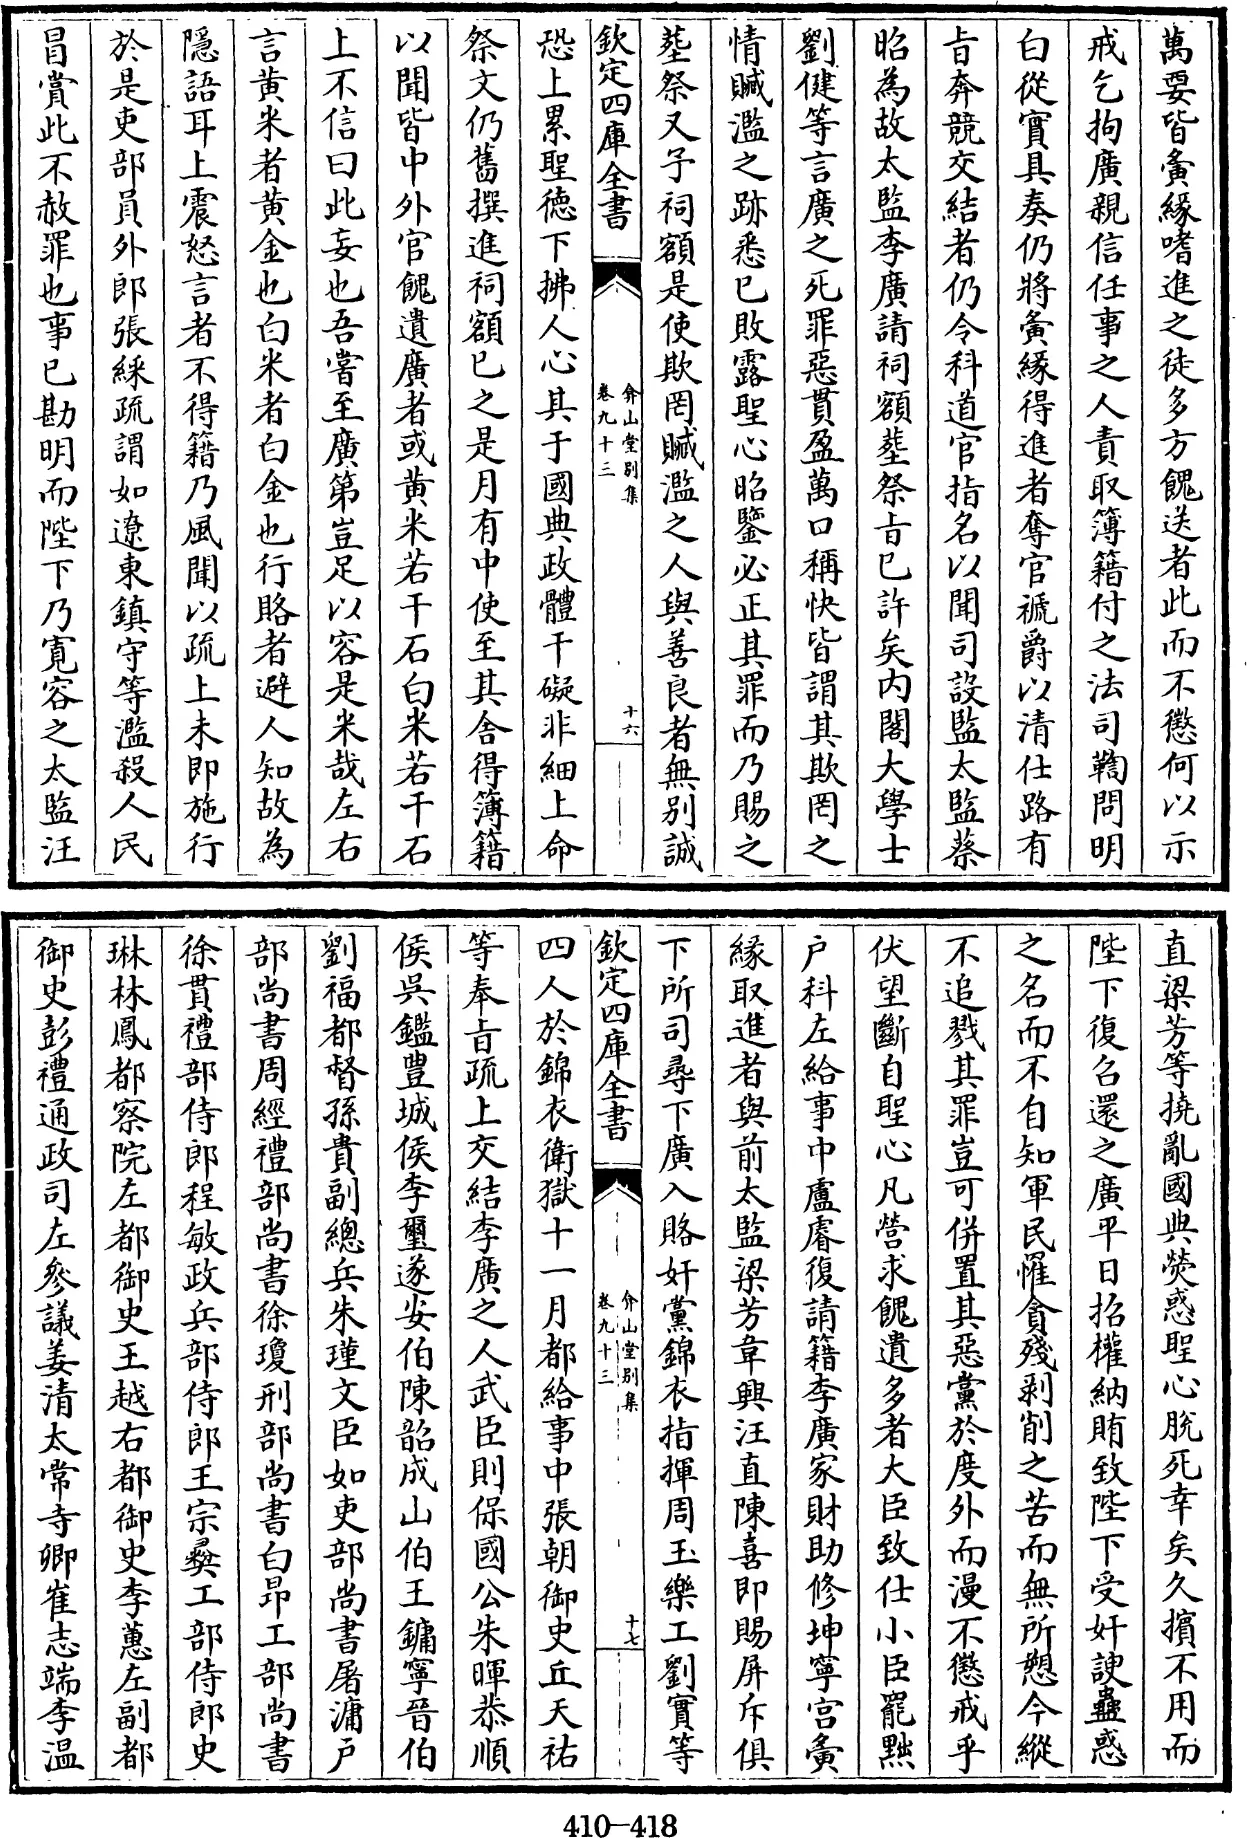 萬要皆夤縁嗜進之徒多方餽送者此而不懲何以示
戒乞拘廣親信任事之人責取簿籍付之法司鞫問明
白從實具奏仍將夤縁得進者奪官褫爵以清仕路有
旨奔競交結者仍令科道官指名以聞司設監太監蔡
昭為故太監李廣請祠額塟祭旨已許矣内閣大學士
劉健等言廣之死罪惡貫盈萬口稱快皆謂其欺罔之
情贓濫之跡悉已敗露聖心昭鑒必正其罪而乃賜之
塟祭又予祠額是使欺罔贓濫之人與善良者無别誠
欽定四庫全書
弇山堂别集
卷九十三
十六
恐上累聖德下拂人心其于國典政體干礙非細上命
祭文仍舊撰進祠額已之是月有中使至其舎得簿籍
以聞皆中外官餽遺廣者或黄米若干石白米若干石
上不信曰此妄也吾嘗至廣第豈足以容是米哉左右
言黄米者黄金也白米者白金也行賂者避人知故為
隱語耳上震怒言者不得籍乃風聞以疏上未即施行
於是吏部員外郎張綵疏謂如遼東鎮守等濫殺人民
冒賞此不赦罪也事已勘明而陛下乃寛容之太監汪
直梁芳等撓亂國典熒惑聖心脱死幸矣久擯不用而
陛下復召還之廣平日招權納賄致陛下受奸諛蠱惑
之名而不自知軍民罹貪殘剥削之苦而無所愬今縱
不追戮其罪豈可併置其惡黨於度外而漫不懲戒乎
伏望斷自聖心凡營求餽遺多者大臣致仕小臣罷黜
户科左給事中盧睿復請籍李廣家財助修坤寧宫夤
縁取進者與前太監梁芳韋興汪直陳喜即賜屏斥俱
下所司尋下廣入賂奸黨錦衣指揮周玉樂工劉實等
欽定四庫全書
弇山堂别集
卷九十三
十七
四人於錦衣衛獄十一月都給事中張朝御史丘天祐
等奉旨疏上交結李廣之人武臣則保國公朱暉恭順
侯吳鑑豐城侯李璽遂安伯陳韶成山伯王鏞寧晉伯
劉福都督孫貴副總兵朱瑾文臣如吏部尚書屠滽户
部尚書周經禮部尚書徐瓊刑部尚書白昂工部尚書
徐貫禮部侍郎程敏政兵部侍郎王宗彞工部侍郎史
琳林鳳都察院左都御史王越右都御史李蕙左副都
御史彭禮通政司左參議姜清太常寺卿崔志端李温
410—418